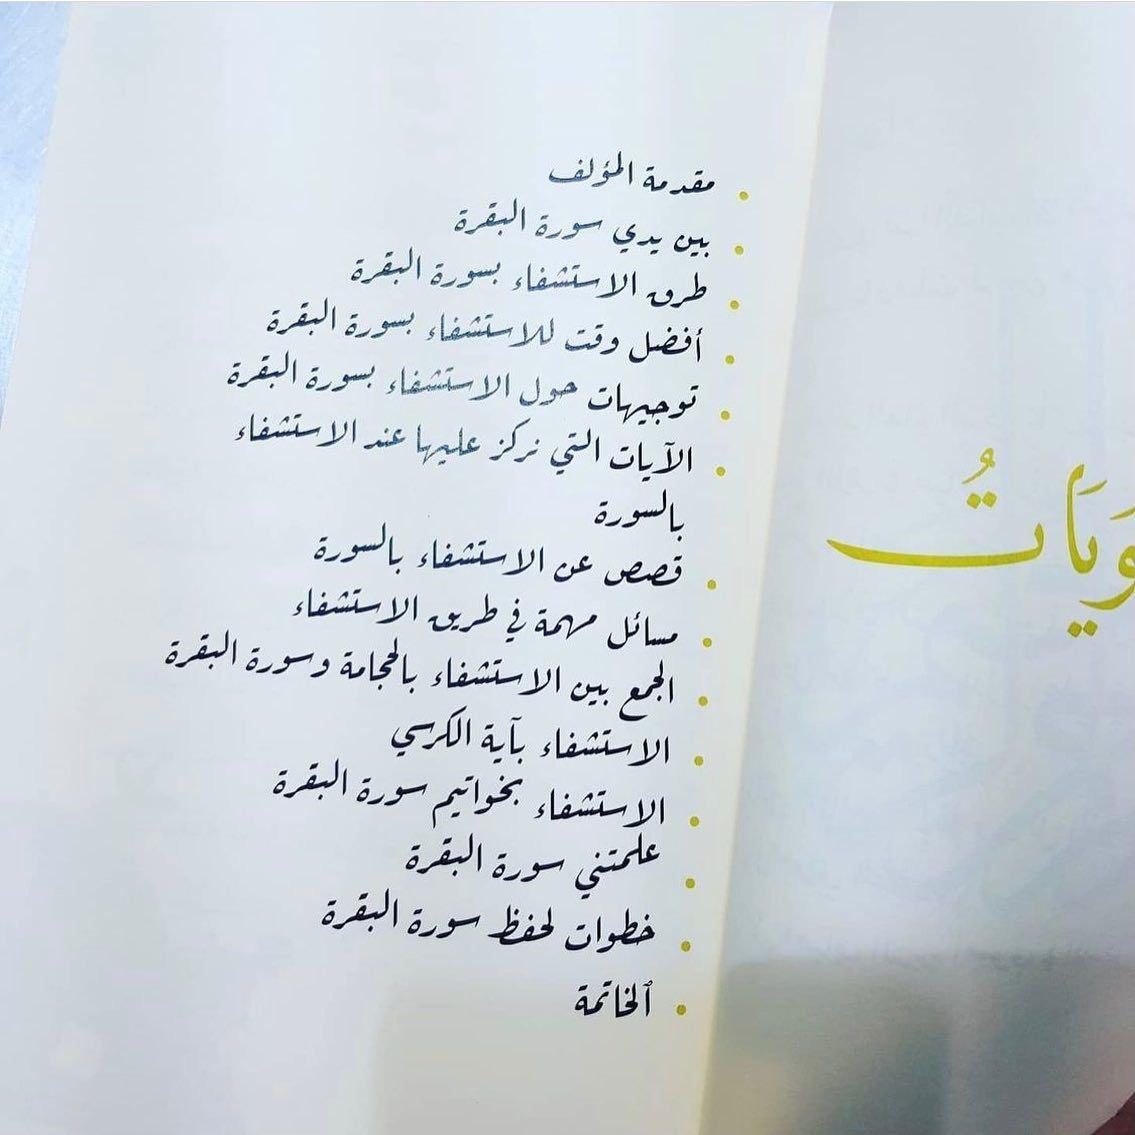 مقدمة المؤلف
بين يدي سورة البقرة
طرق الاستشفاء بسورة البقرة
أفضل وقت للاستشفاء بسورة البقرة
توجيهات حول الاستشفاء بسورة البقرة
الآيات التي نركز عليها عند الاستشفاء
بالسورة
قصص عن الاستشفاء بالسورة
مسائل مهمة في طريق الاستشفاء
الجمع بين الاستشفاء بالحجامة وسورة البقرة
الاستشفاء بآية الكرسي
الاستشفاء بخواتيم سورة البقرة
علمتني سورة البقرة
خطوات لحفظ سورة البقرة
ٱلخاتمة